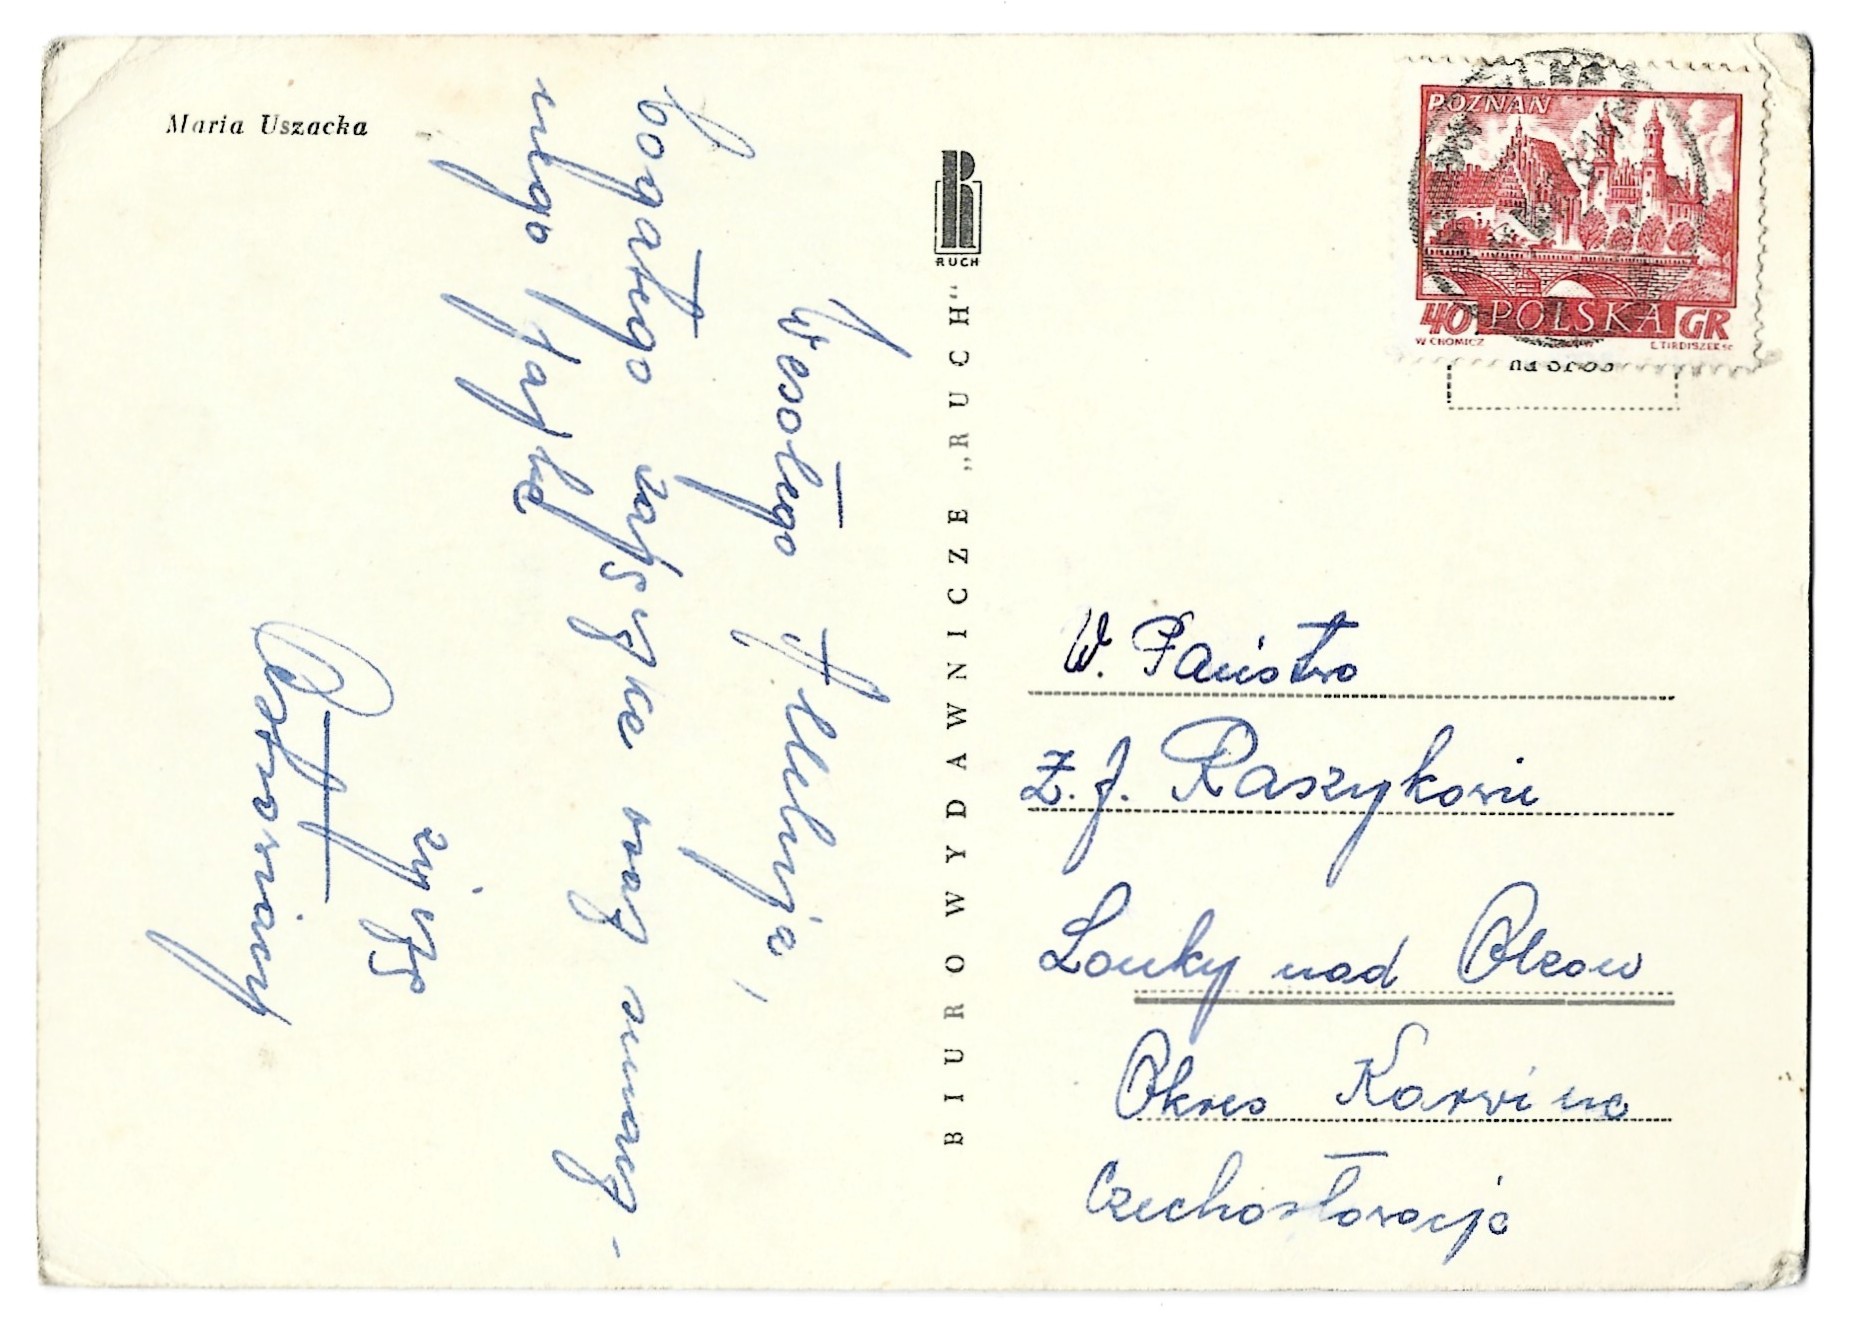 Maria Uszacka
Wesołego Alleluja,
bogatego zajączka oraz smacz-
nego jajka
życzą
RUCH
BIURO WYDAWNICZE „RUCH"
POZNAŃ
40 POLSKA GR
W CHOMICZ
W. Państwo
Z. J. Raszykowie
Louky nad Olzou
Okres Karwina
Czechosłowacja